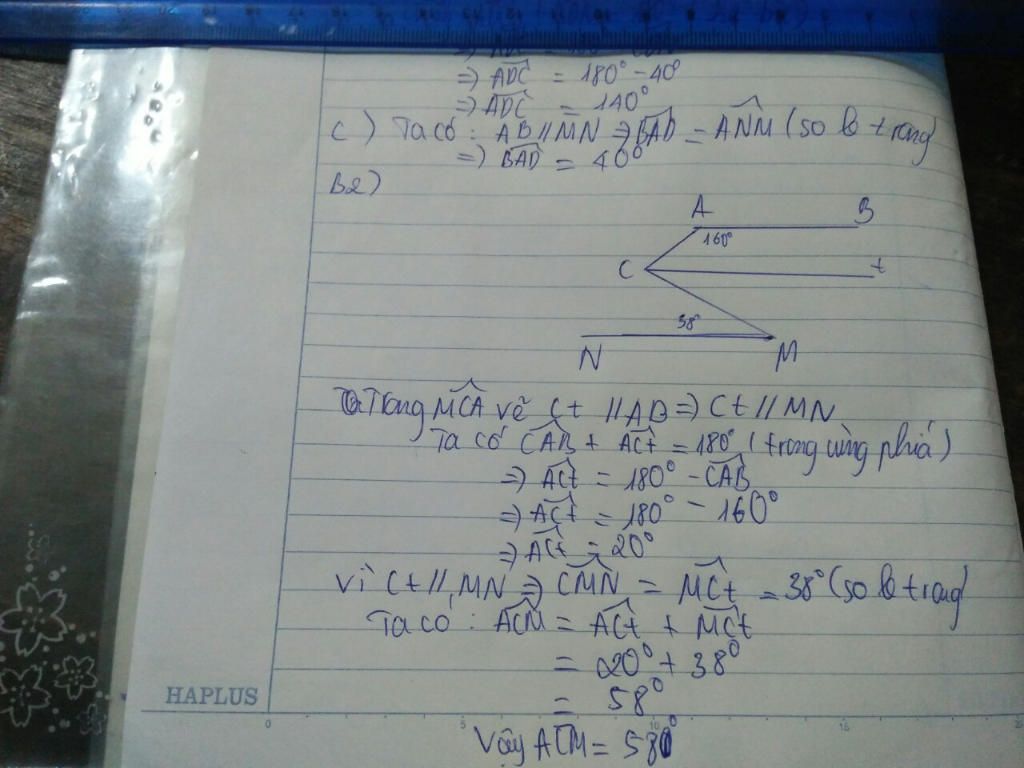 ⇒ ADC = 180° - 40°
⇒ ADC = 140°
c) Ta có: AB // MN ⇒ BAD = ANM (so le trong)
⇒ BAD = 40°
B2)
A B
160°
C t
38°
N M
Trong MCA vẽ Ct // AB ⇒ Ct // MN
Ta có CAB + ACt = 180° (trong cùng phiá)
⇒ ACt = 180° - CAB
⇒ ACt = 180° - 160°
⇒ ACt = 20°
Vì Ct // MN ⇒ CMN = MCt = 38° (so le trong)
Ta có: ACM = ACt + MCt
= 20° + 38°
= 58°
HAPLUS
0 5 10 15 20
Vậy ACM = 58°